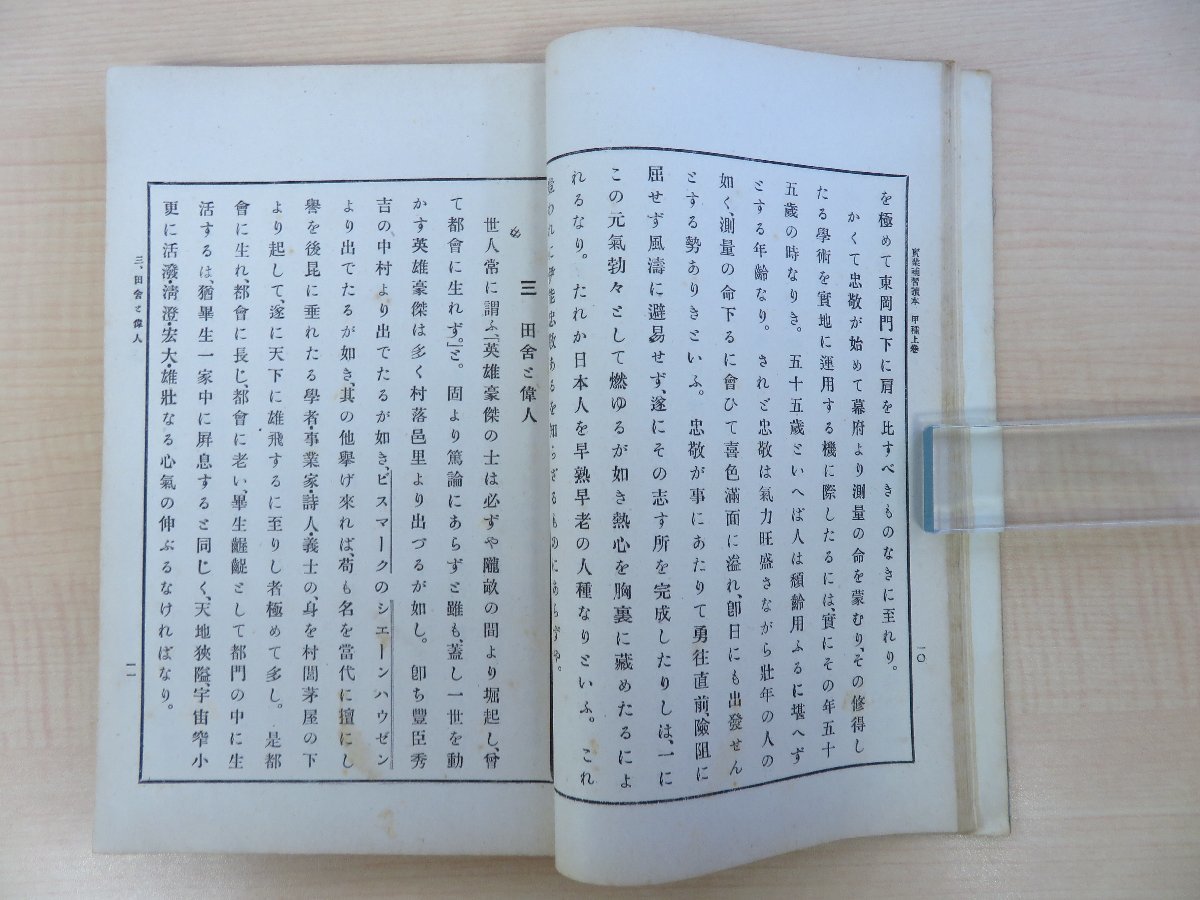 實業補習讀本 甲種上卷
一〇
を極めて東岡門下に肩を比すべきものなきに至れり。
かくて忠敬が始めて幕府より測量の命を蒙むり、その修得し
たる學術を實地に運用する機に際したるには、實にその年五十
五歲の時なりき。 五十五歲といへば人は頽齡用ふるに堪へず
とする年齡なり。 されど忠敬は氣力旺盛さながら壯年の人の
如く、測量の命下るに會ひて喜色滿面に溢れ、卽日にも出發せん
とする勢ありきといふ。 忠敬が事にあたりて勇往直前、險阻に
屈せず風濤に避易せず、遂にその志す所を完成したりしは、一に
この元氣勃々として燃ゆるが如き熱心を胸裏に藏めたるによ
れるなり。 たれか日本人を早熟早老の人種なりといふ。 これ
われに伊能忠敬あるを知らざるものにあらずや。
三 田舍と偉人
世人常に謂ふ、『英雄豪傑の士は必ずや隴畝の間より堀起し、曾
て都會に生れず。』と。 固より篤論にあらずと雖も、蓋し一世を動
かす英雄豪傑は多く村落邑里より出づるが如し。 卽ち豐臣秀
吉の中村より出でたるが如き、ビスマークのシエーンハウゼン
より出でたるが如き、其の他擧げ來れば、苟も名を當代に擅にし
譽を後昆に垂れたる學者・事業家・詩人・義士の、身を村閭茅屋の下
より起して、遂に天下に雄飛するに至りし者極めて多し。 是都
會に生れ、都會に長じ、都會に老い、畢生齷齪として都門の中に生
活するは、猶畢生一家中に屏息すると同じく、天地狹隘、宇宙窄小
更に活潑・淸澄・宏大・雄壯なる心氣の伸ぶるなければなり。
三、田舍と偉人
一一